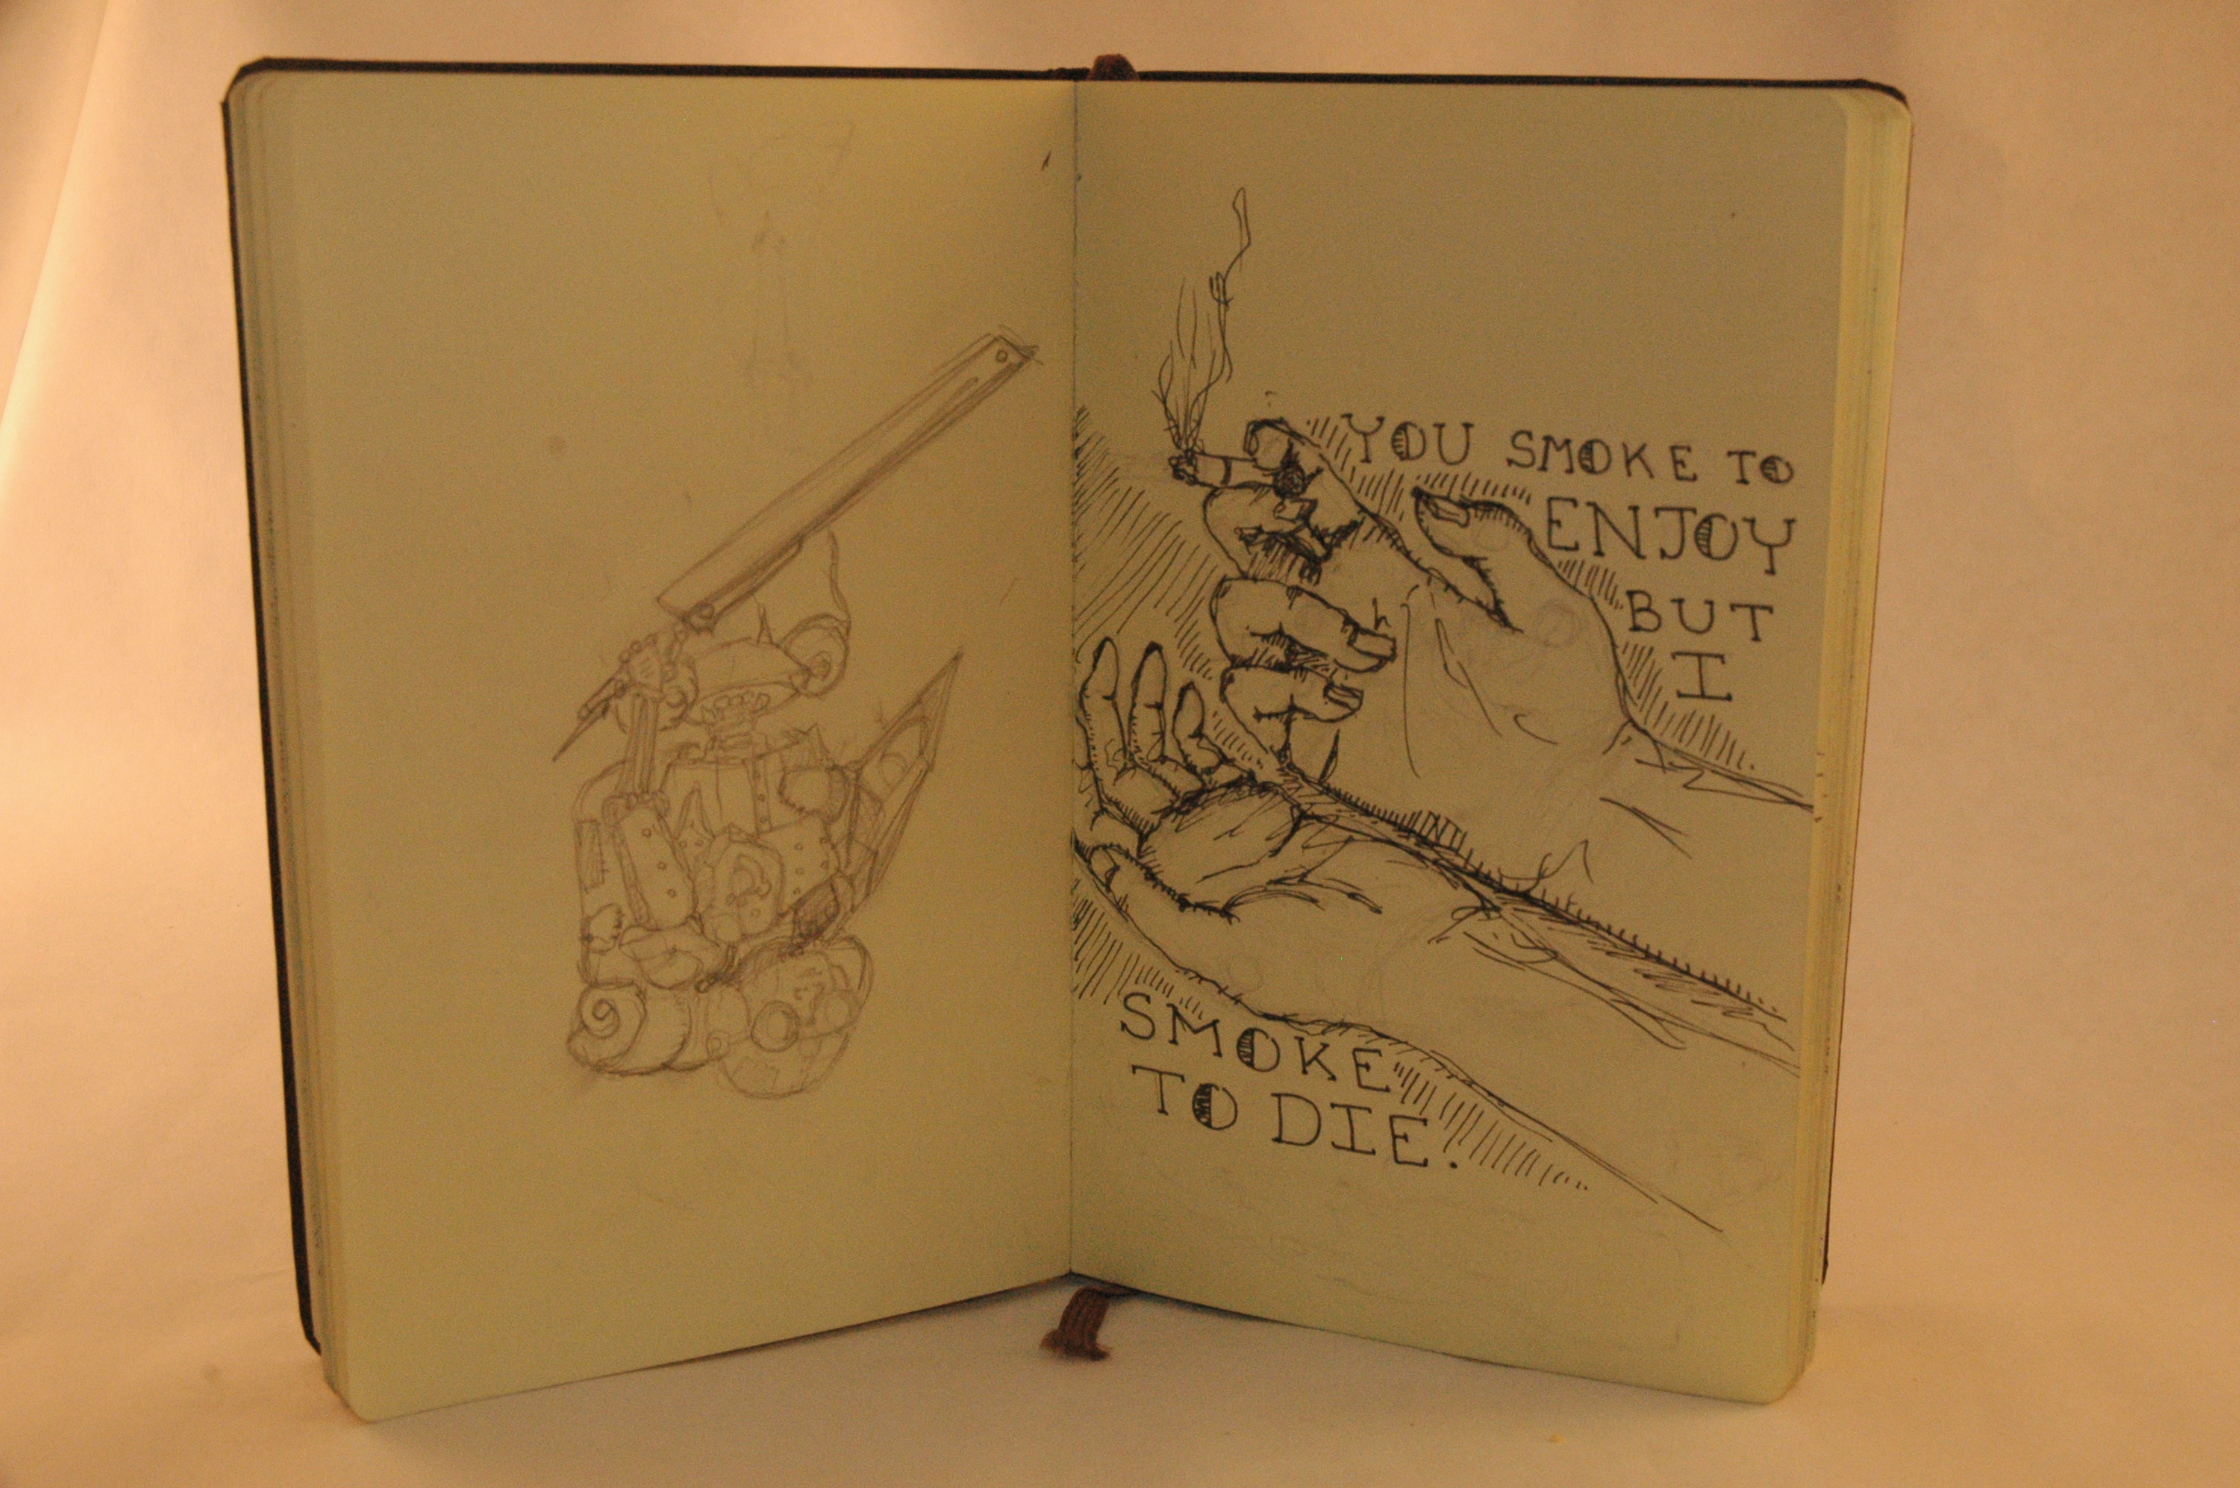 YOU SMOKE TO
ENJOY
BUT
I
SMOKE
TO DIE.